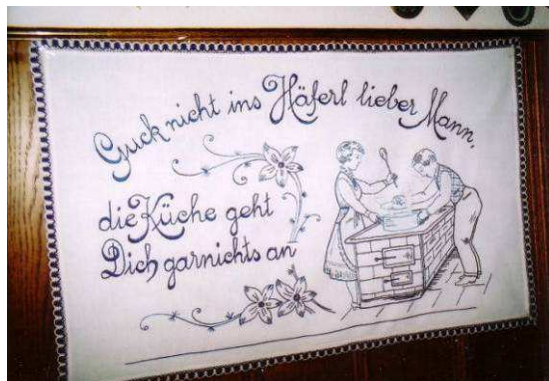 Guck nicht ins Häferl lieber Mann,
die Küche geht
Dich garnichts an